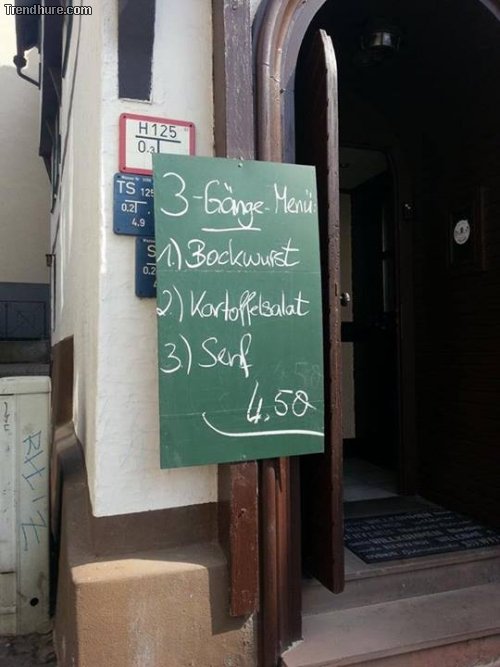 Trendhure.com
H125
0.3
TS 125
0.2
4.9
S
0.2
3-Gänge-Menü:
1.) Bockwurst
2.) Kartoffelsalat
3.) Senf
4.50